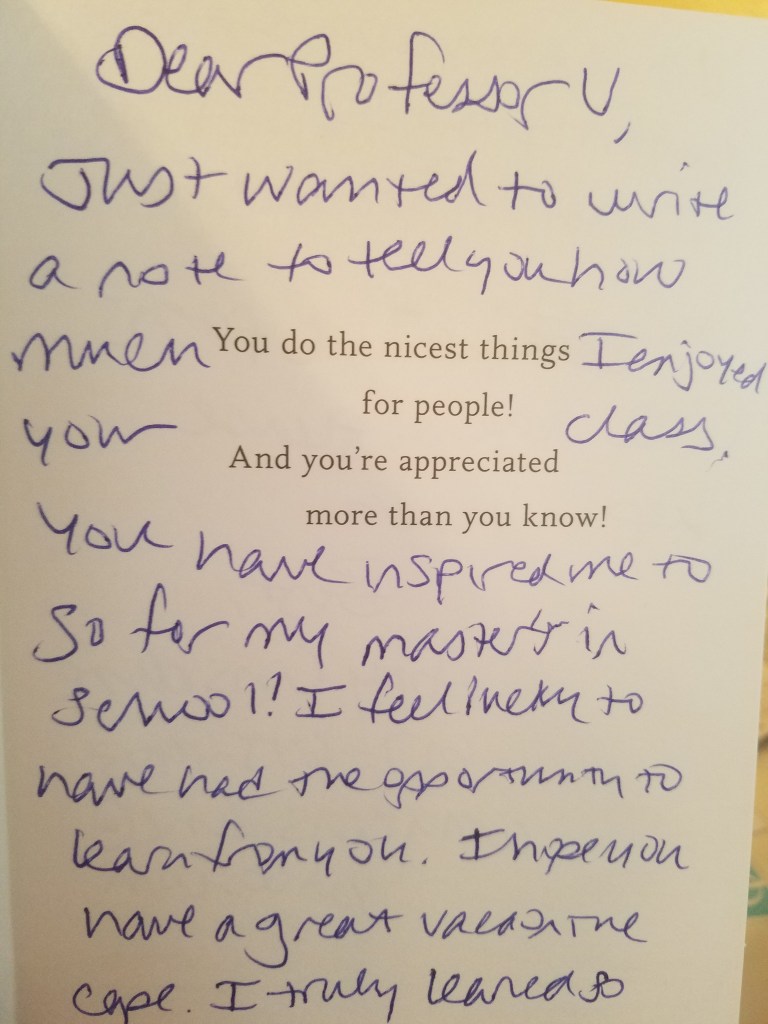 Dear Professor V,
Just wanted to write
a note to tell you how
much You do the nicest things I enjoyed
for people!
your class.
And you're appreciated
more than you know!
You have inspired me to
go for my master's in
school! I feel lucky to
have had the opportunity to
learn from you. I hope you
have a great vacation the
cape. I truly learned so